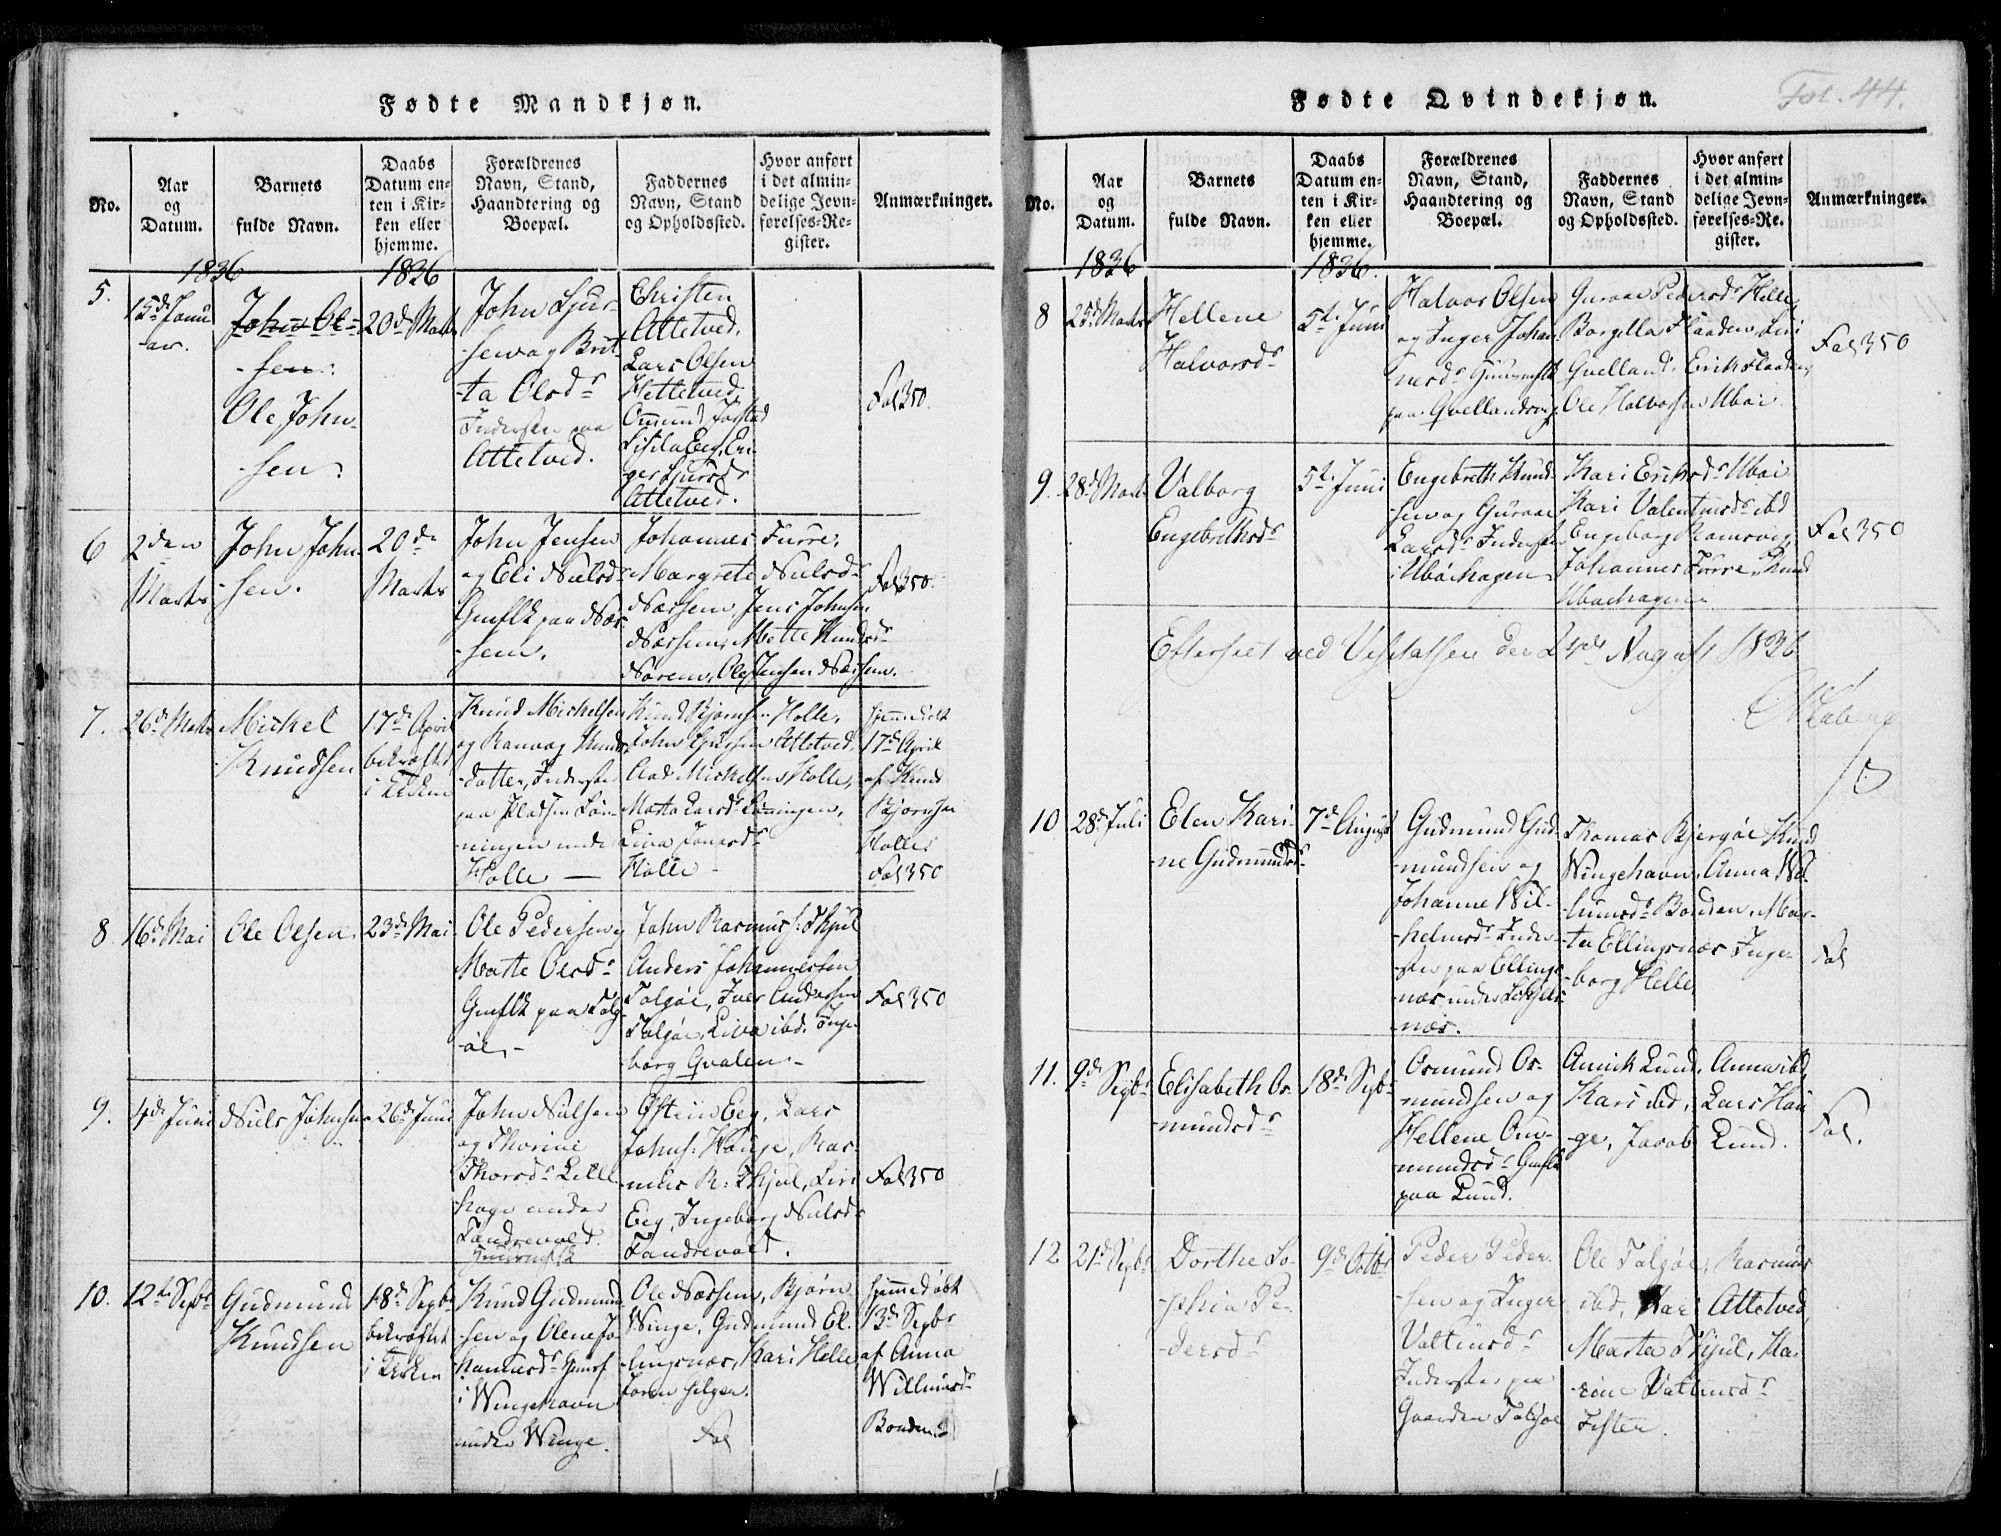 Fødte Mandkjøn.
No.
Aar
og
Datum.
Barnets
fulde Navn.
Daabs
Datum en-
ten i Kir-
ken eller
hjemme.
Forældrenes
Navn, Stand,
Haandtering og
Boepæl.
Faddernes
Navn, Stand
og Opholdssted.
Hvor anført
i det almin-
delige Jevn-
førelses-Re-
gister.
Anmærkninger.
1836
1836
5.
15d Janu
-ar.
John Ol-
-sen.
Ole John-
-sen.
20d Marts
John Sjur-
-sen og Brit-
-ta Olsdr
Inderster paa
Attetved.
Christen
Attetved,
Lars Olsen
Hettetved,
Omund
Attetved.
Fol 350.
6
2den
Marts
John John-
-sen.
20de
Marts
John Jensen
og Eli Nielsdr
Gmflk paa Nær-
-sem.
Johannes Furre,
Margrete Nielsdr
Nærsem, Jens Johnsen
Nærsem, Mette Knudsdr
Nærem, Ole Jensen Nærsem.
Fol 350.
7.
26d Marts
Mickel
Knudsen
17d April
bekræftet
i Kirken
Knud Mickelsen
og Ranvog Knuds-
-datter, Inderster
paa Pladsen Løn-
-ningen under
Holle —
Knud Bjornsen Holle,
John Attetved,
Aad Mickelsen Holle,
Marta Larsdr Lønningen,
Holle -
hjemmedøbt
17d April
af Knud
Bjornsen
Holle
Fol 350
8.
16d Mai
Ole Olsen
23d Mai
Ole Pedersen og
Marte Olsdr
Gmflk paa Talg-
-øe -
John Rasmus s: Thjul
Anders Johannessen
Talgøe, Iver Andersen
Talgøe, Liva ibd. Inge-
borg Qvalen -
Fol 350
9.
4d Juni
Niels Johnsen
26d Juni
John Nielsen
og Thorine
Thorsdr Lille
hage under
Landrevold.
Østen Eeg, Lars
Johns: Hauge, Ras-
-mus R: Thjul, Siri
Eeg, Ingeborg Nielsdr
Landrevold.
Fol 350
10.
12te Sepbr
Gudmund
Knudsen
18d Sepbr
bekræftet
i Kirken
Knud Gudmund-
-sen og Olene Jo-
hannesdr
i Wingehavn
under Winge.
Ole Nærsem, Bjørn
Winge, Gudmund El-
-lingsnæs, Kari Helle,
Fol
hjemmedøbt
13d Sepbr
af Anna
Willumsdr
Bonden
Fødte Qvindekjøn.
Fol. 44.
No.
Aar
og
Datum.
Barnets
fulde Navn.
Daabs
Datum en-
ten i Kir-
ken eller
hjemme.
Forældrenes
Navn, Stand,
Haandtering og
Boepæl.
Faddernes
Navn, Stand
og Opholdssted.
Hvor anført
i det almin-
delige Jevn-
førelses-Re-
gister.
Anmærkninger.
1836
1836.
8
25d Marts
Hellene
Halvorsdr
5te Juni
Halvor Olsen
og Inger Johan-
-nesdr
paa Qvellandsvig
Guroe Pedersdr Helle,
Borgilla Flaaden, Siri
Qvelland, Erik Flaaden,
Ole Halvorsen Ubøe.
Fol 350
9.
28d Marts
Valborg
Engebrethsdr
5te Juni
Engebreth Knud-
-sen og Guroe
Larsdr Inderster
i Ubøehagen
Kari Eriksdr Ubøe
Kari Valentinsdr ibd
Engeborg Ramsvig,
Johannes Forre, Knud
Ubøehagen
Fol 350
Efterseet ved Visitatsen den 24de August 1836
10
28d Juli
Elen Kari-
ne Gudmundsdr
7de August
Gudmund Gud-
-mundsen og
Johanne Wil-
-helmsdr Inder-
-ster paa Ellings-
-næs under
-næs.
Thomas Bjergøe, Knud
Wingehavn, Anna Wil-
lumsdr Bonden, Mar-
-ta Ellingsnæs, Inge-
borg Helle
Fol
11.
9d Sepbr
Elisabeth Os-
mundsdr
18d Sepbr
Osmund Os-
-mundsen og
Hellene Om-
-mundsdr Gmflk
paa Lund.
Annik Lund, Anna ibd,
Kari ibd, Lars Hau-
-ge, Jacob Lund.
Fol.
12
21d Sepbr
Dorthe So-
-phia Pe-
-dersdr
9d Octbr
Peder Peder-
-sen og Inger
Valtinsdr
Inderster paa
Gaarden Talgøe
Ole Talgøe, Rasmus
ibd, Kari Attetved,
Marta Thjul, Ka-
-rine Valtinsdr
Fister.